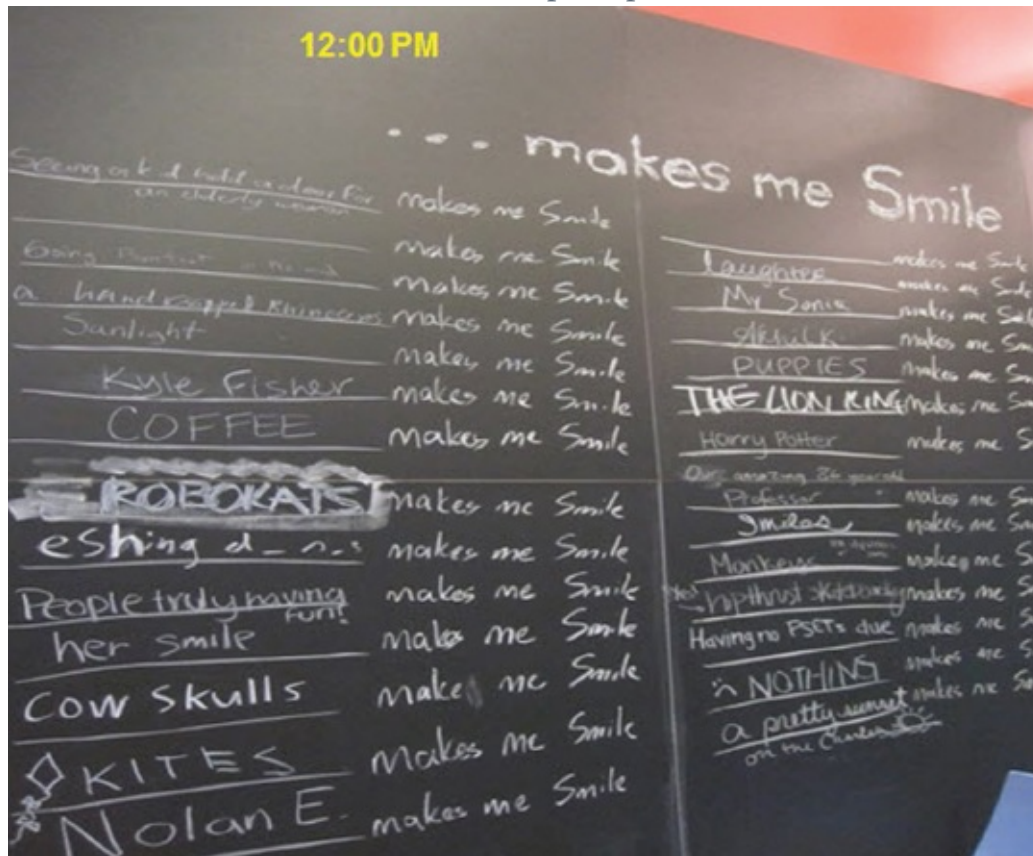 12:00 PM
... makes me Smile
Seeing a kid hold a door for
an elderly woman makes me Smile
makes me Smile
Going makes me Smile
a handicapped Rhinoceros makes me Smile
Sunlight makes me Smile
Kyle Fisher makes me Smile
COFFEE makes me Smile
ROBOKATS makes me Smile
eshing makes me Smile
People truly having
FUN! makes me Smile
her smile makes me Smile
Cow Skulls make me Smile
KITES makes me Smile
Nolan E. makes me Smile
makes me Smile
Laughter makes me Smile
My Sonia makes me Smile
makes me Sm
PUPPIES makes me Sm
THE LION KING makes me Sm
Harry Potter makes me S
Our amazing 86 year old
Professor makes me S
Smiles makes me Sm
Monkeys makes me S
hipthrust skateboarding makes me S
Having no PSETs due makes me S
NOTHING makes me S
a pretty sunset makes me Sm
on the Charles